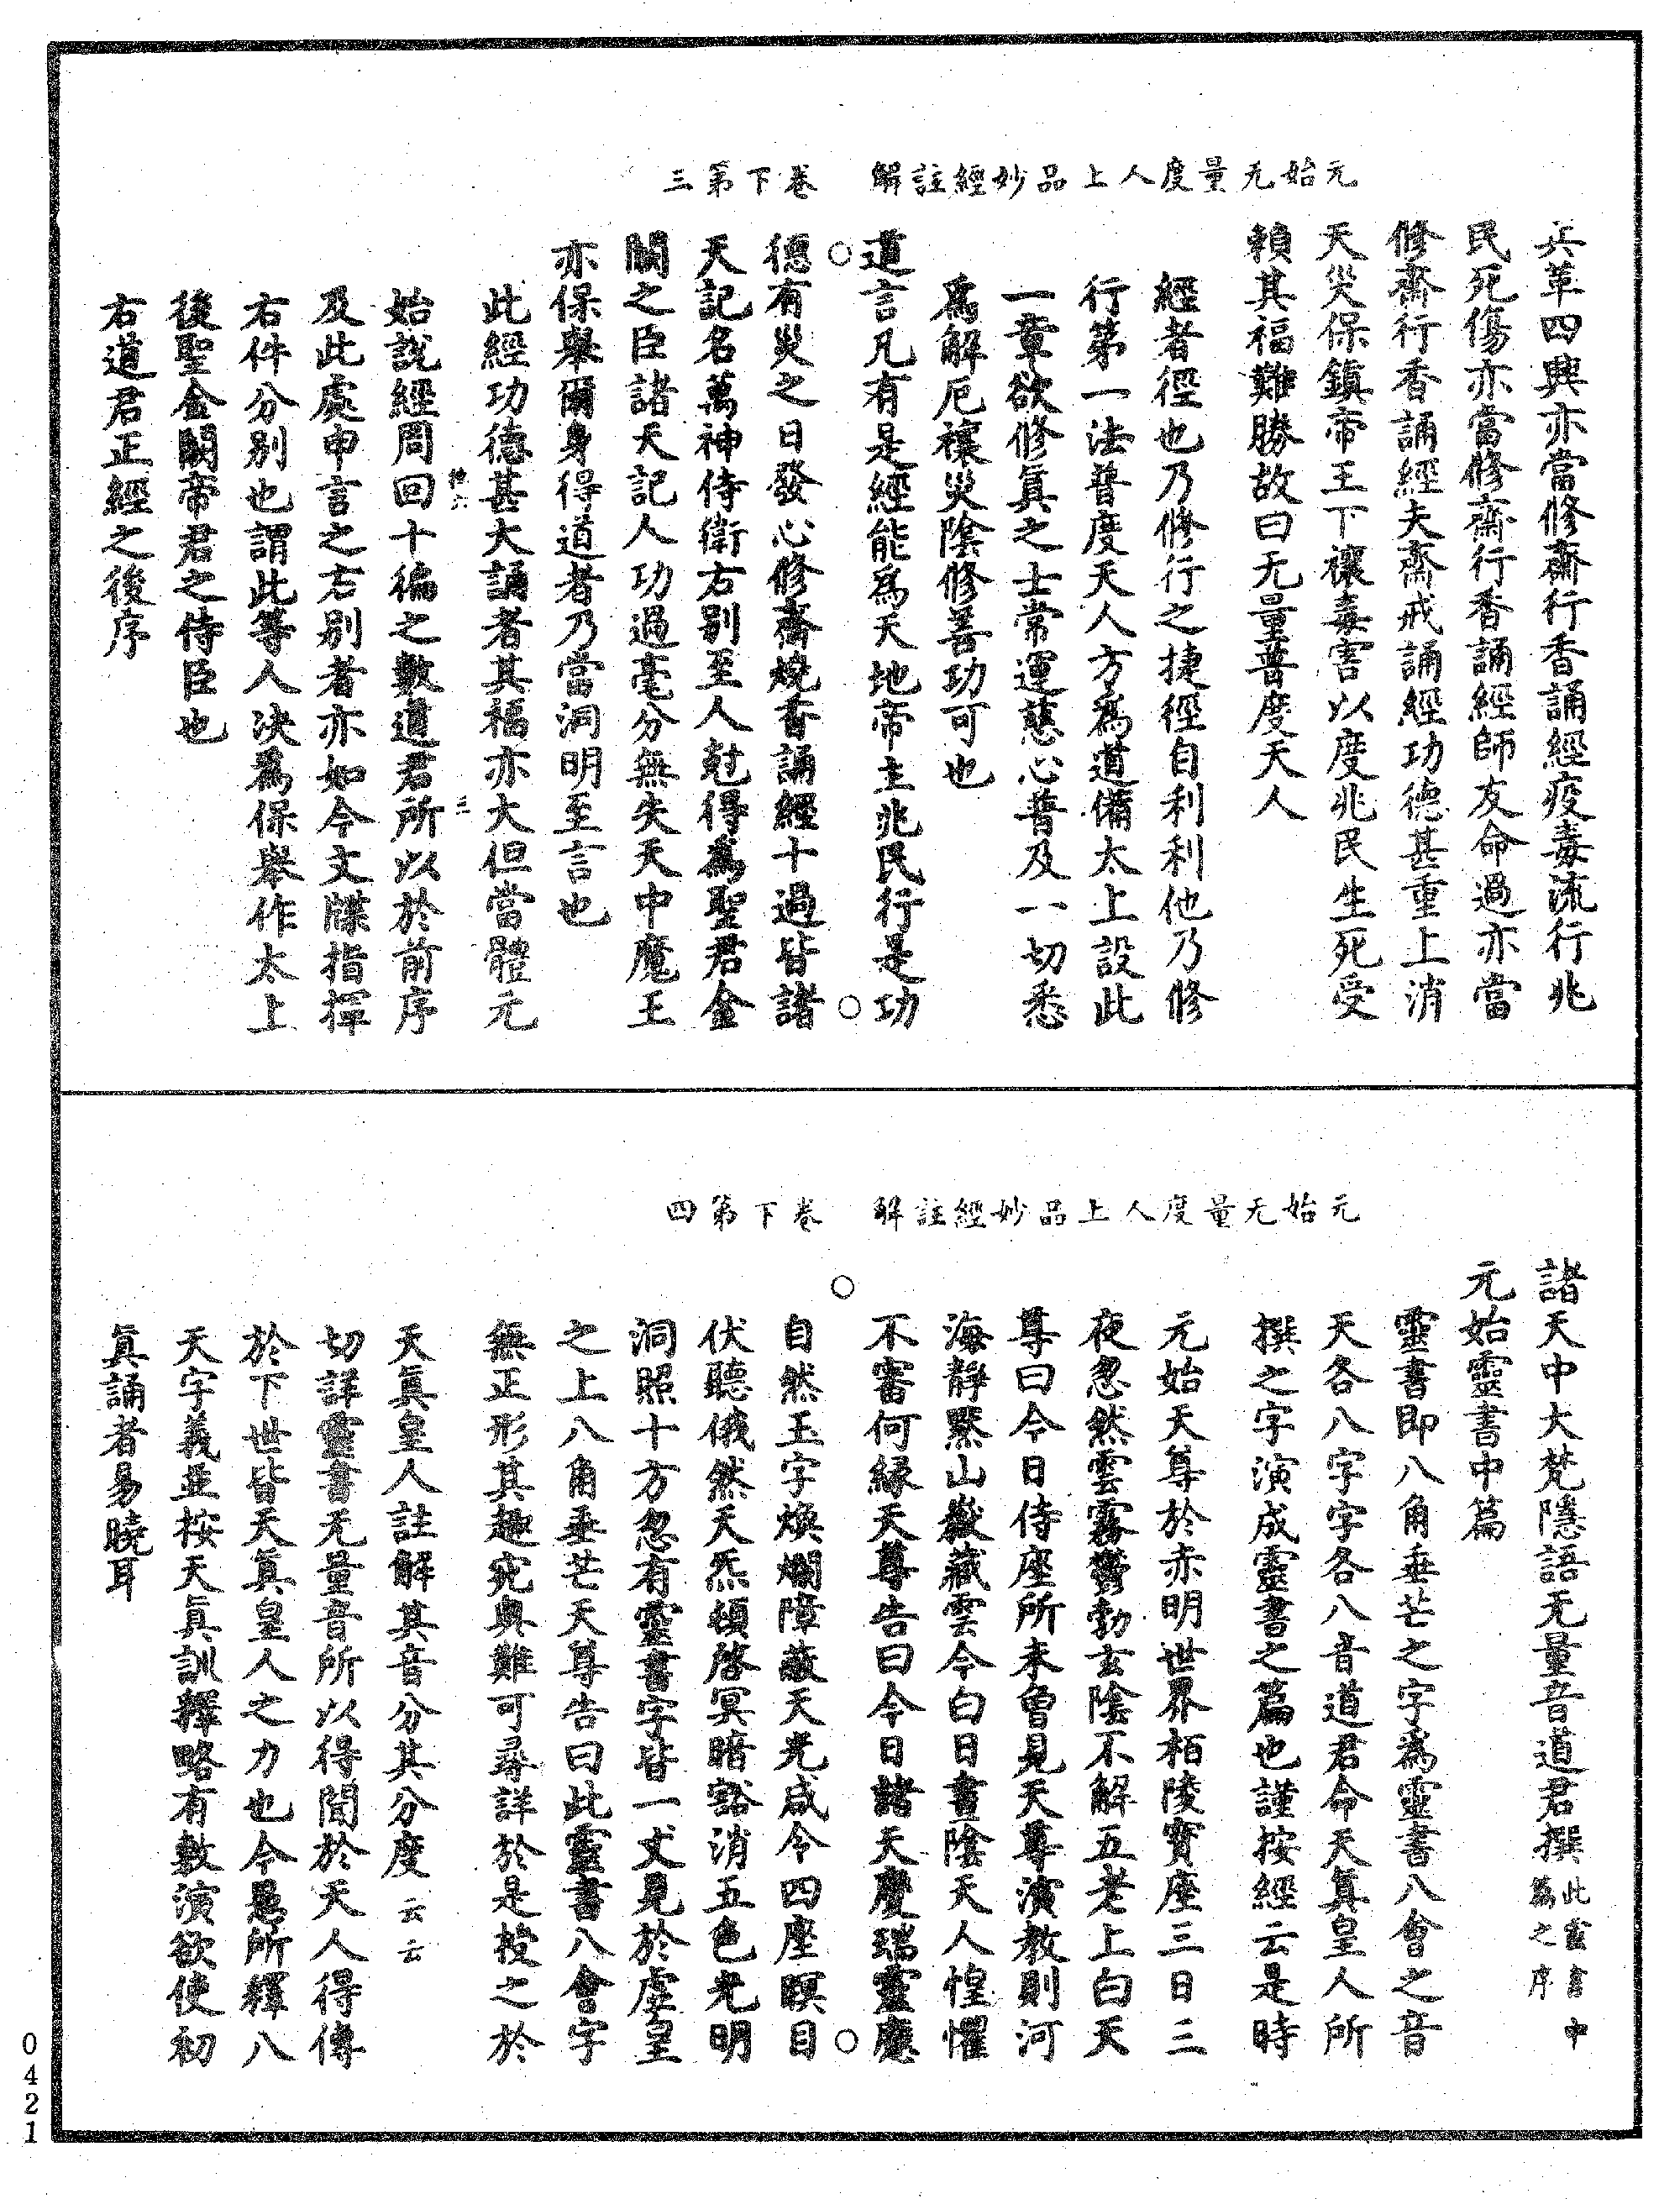 元始无量度人上品妙經註解 卷下第三
兵革四興亦當修齋行香誦經疫毒流行兆
民死傷亦當修齋行香誦經師友命過亦當
修齋行香誦經夫齋戒誦經功德甚重上消
天災保鎮帝王下禳毒害以度兆民生死受
賴其福難勝故曰无量普度天人
經者徑也乃修行之捷徑自利利他乃修
行第一法普度天人方為道備太上設此
一章欲修真之士常運慈心普及一切悉
爲解厄禳災陰修善功可也
道言凡有是經能爲天地帝主兆民行是功
德有災之日發心修齋燒香誦經十過皆諸
天記名萬神侍衛右别至人尅得爲聖君金
闕之臣諸天記人功過毫分無失天中魔王
亦保舉爾身得道者乃當洞明至言也
此經功德甚大誦者其福亦大但當體元
始說經周回十徧之數道君所以於前序
及此處申言之右别者亦如今文牒指揮
右件分别也謂此等人决爲保舉作太上
後聖金闕帝君之侍臣也
右道君正經之後序
三
元始无量度人上品妙經註解 卷下第四
諸天中大梵隱語无量音道君撰 此靈書中
篇之序
元始靈書中篇
靈書即八角垂芒之字爲靈書八會之音
天各八字字各八音道君命天真皇人所
撰之字演成靈書之篇也謹按經云是時
元始天尊於赤明世界栢陵寶座三日三
夜忽然雲霧鬱勃玄陰不解五老上白天
尊曰今日侍座所未曾見天尊演教則河
海靜默山嶽藏雲今白日晝陰天人惶懼
不審何緣天尊告曰今日諸天慶瑞靈應
自然玉字煥爛障蔽天光咸令四座瞑目
伏聽俄然天炁頓啓冥暗豁消五色光明
洞照十方忽有靈書字皆一丈見於虛皇
之上八角垂芒天尊告曰此靈書八會字
無正形其趣宛奥難可尋詳於是授之於
天真皇人註解其音分其分度云云
切詳靈書无量音所以得聞於天人得傳
於下世皆天真皇人之力也今愚所釋八
天字義並按天真訓釋略有敷演欲使初
真誦者易曉耳
0421